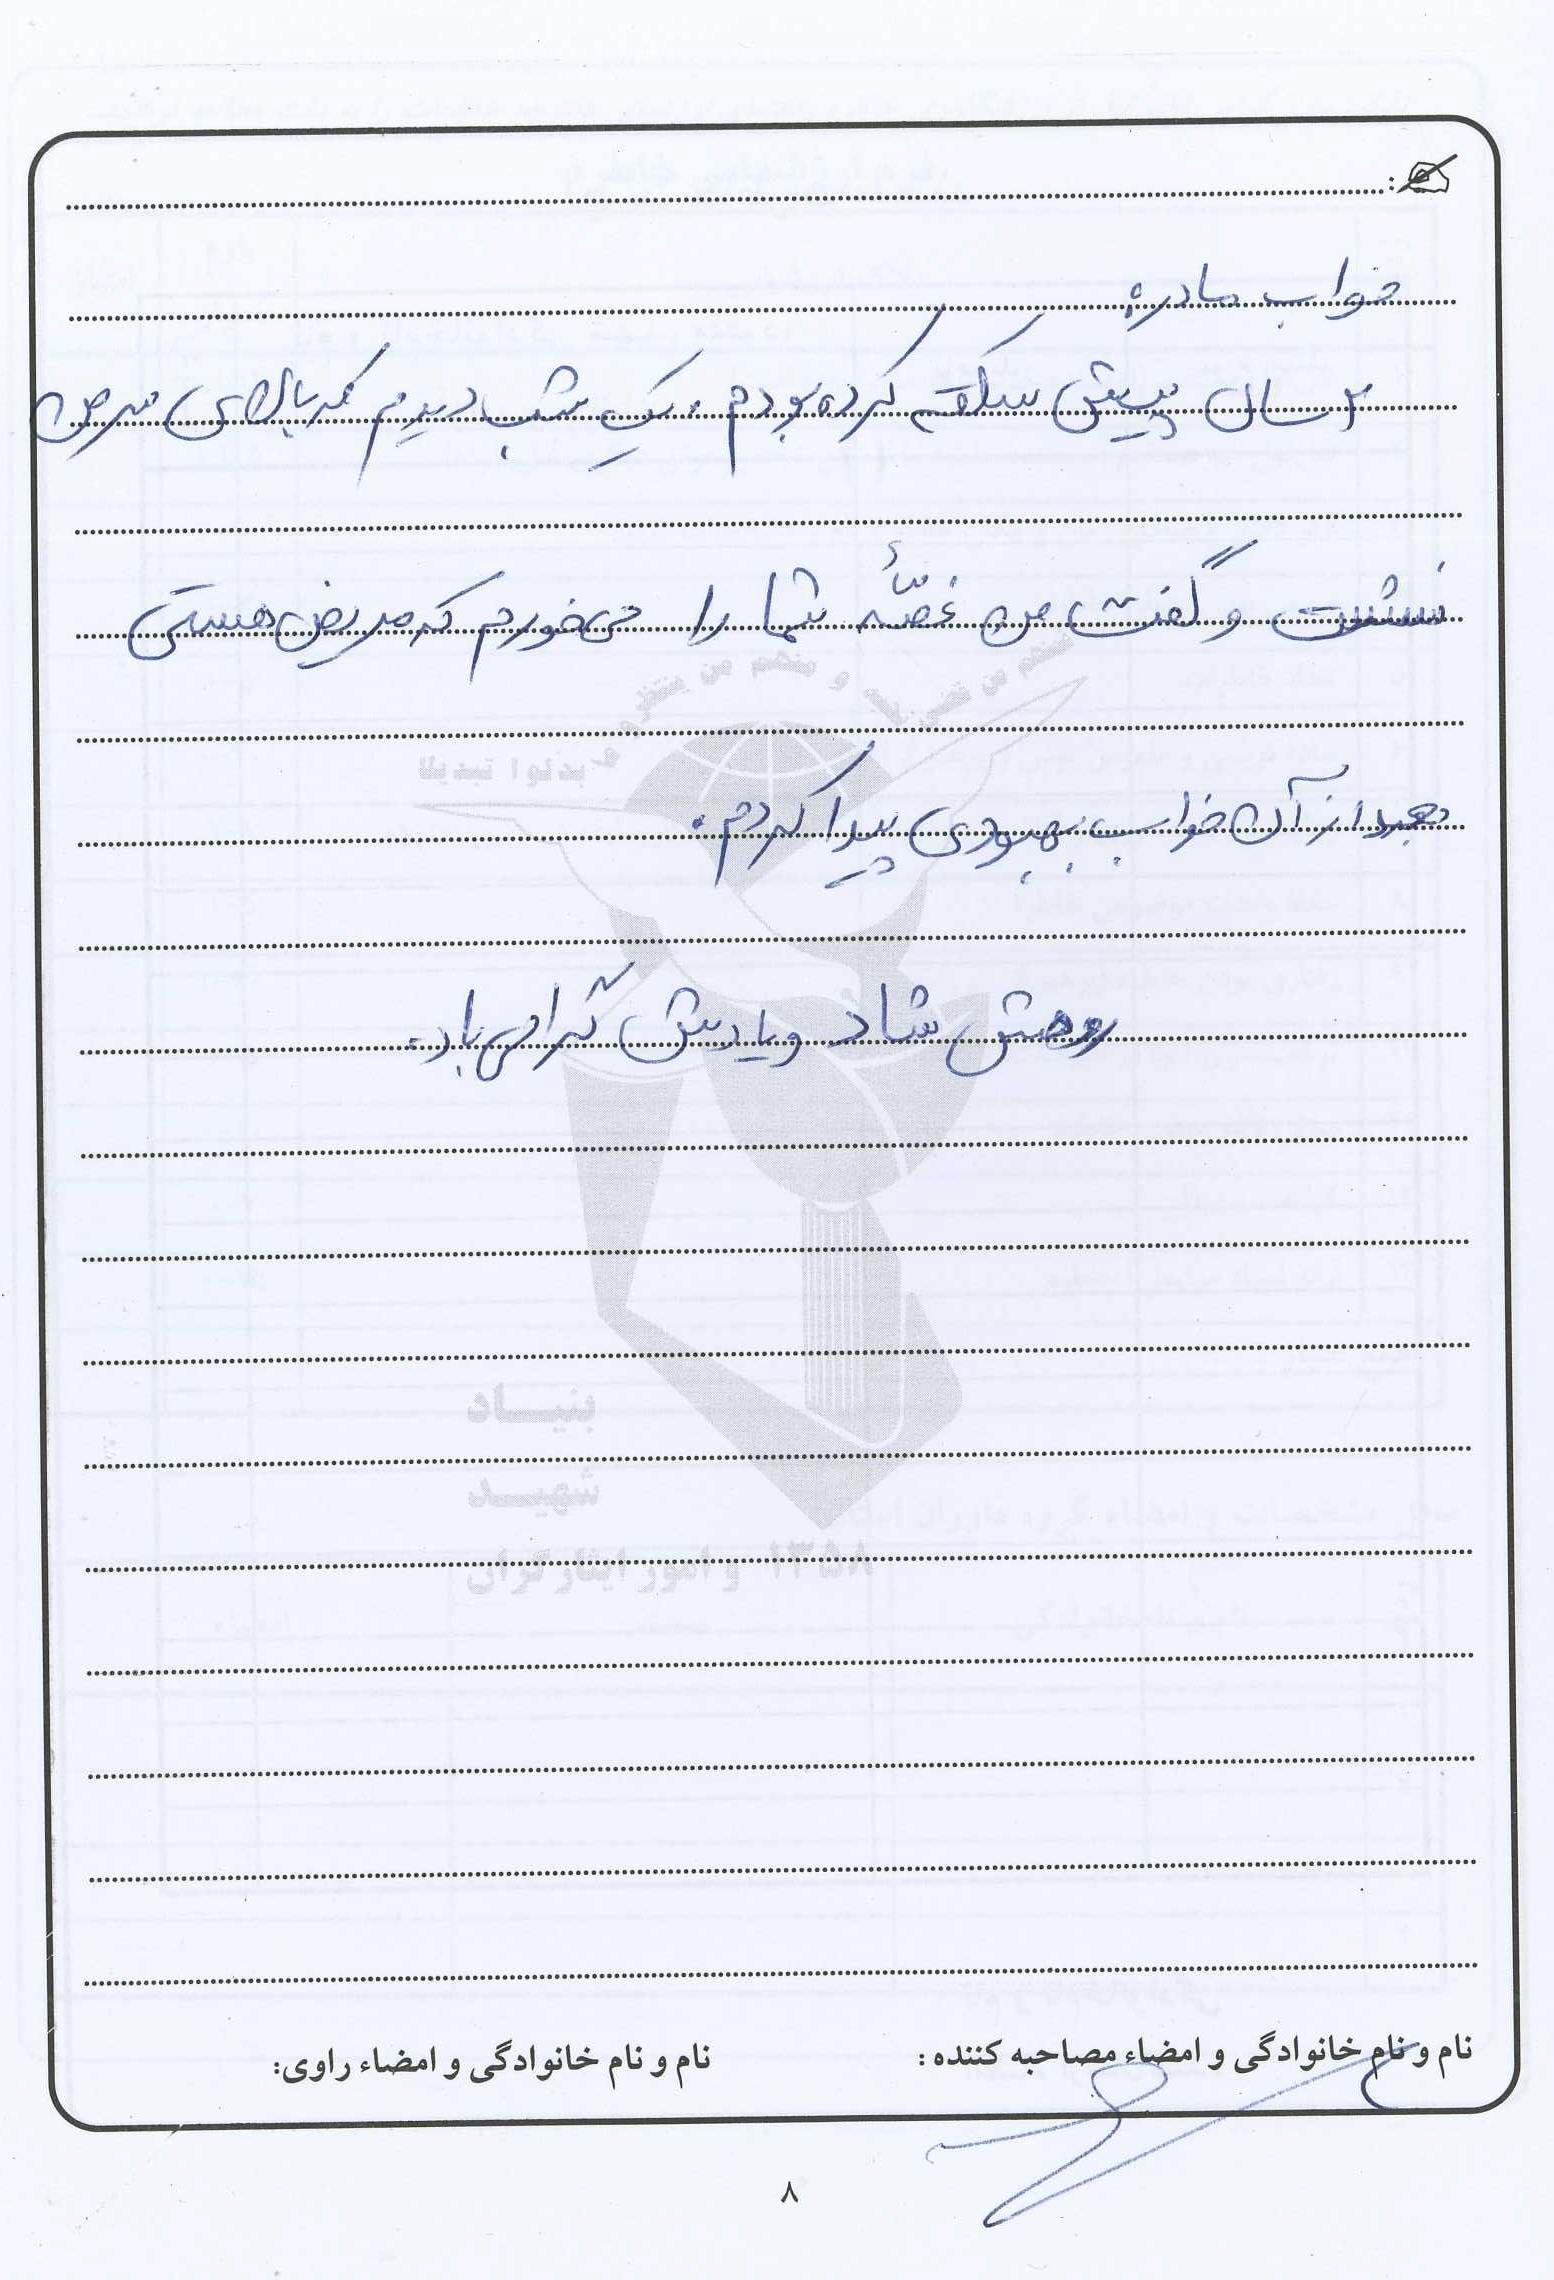 خواب مادر:
۲ سال پیش سکته کرده بودم. یک شب دیدم که بالای سر من
نشست و گفت من غصّهٔ شما را می‌خورم که مریض هستی
بعد از آن خواب بهبودی پیدا کردم.
منهم من قضی نحبه و منهم من ینتظر و ما بدلوا تبدیلا
روحش شاد و یادش گرامی باد.
بنیاد
شهید
و امور ایثارگران ۱۳۵۸
نام و نام خانوادگی و امضاء مصاحبه کننده : نام و نام خانوادگی و امضاء راوی:
۸